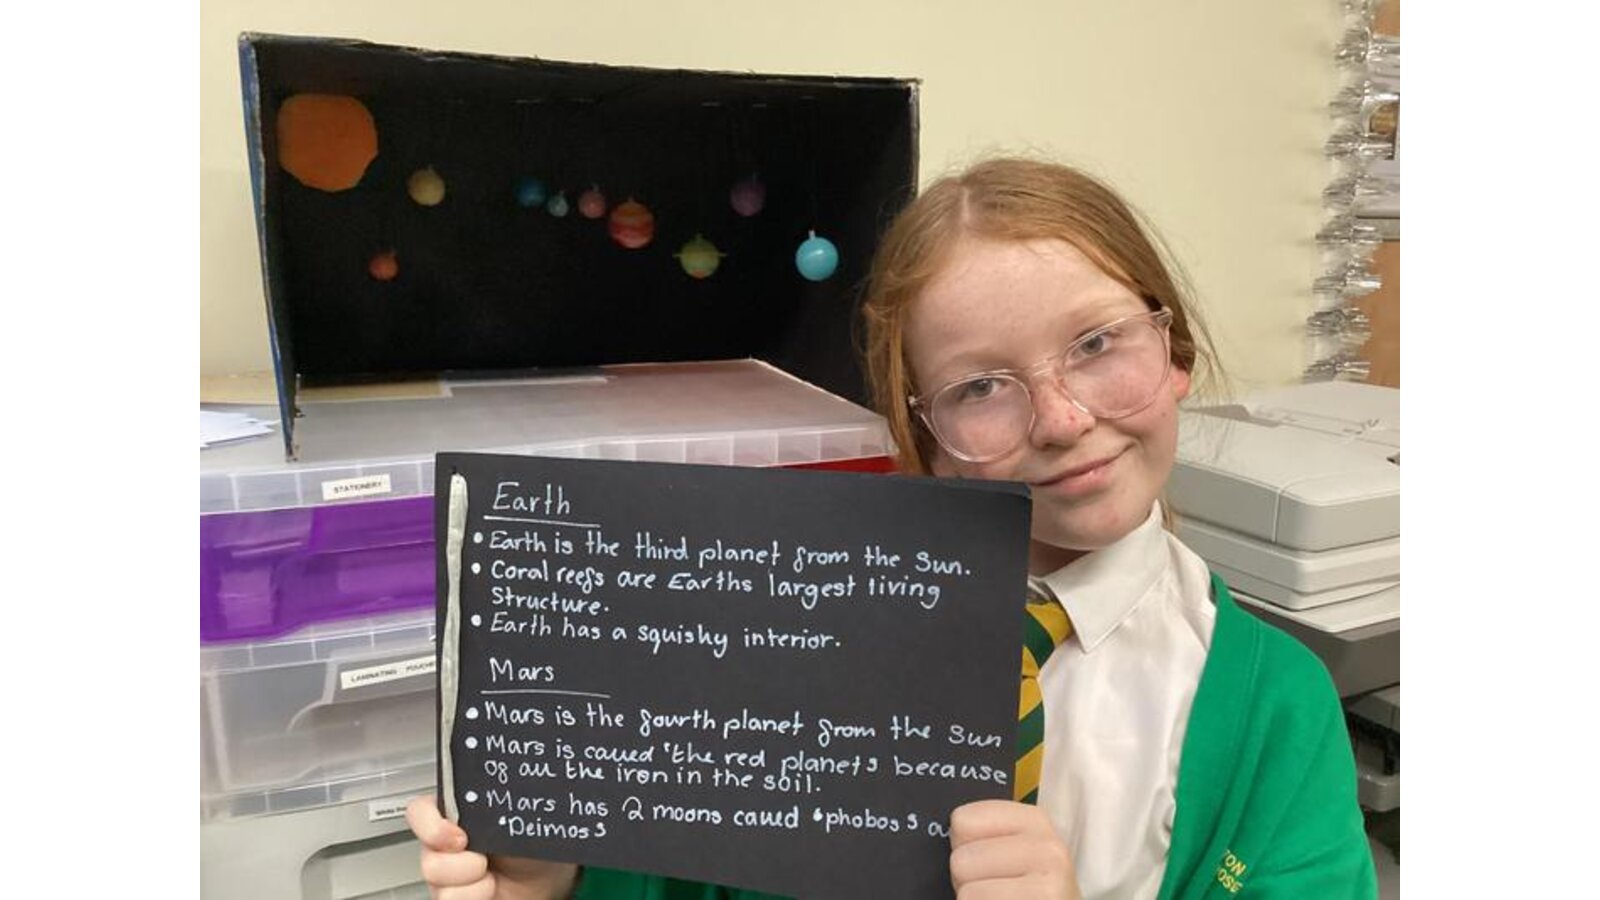 STATIONERY
LAMINATING POUCHES
Earth
• Earth is the third planet from the Sun.
• Coral reefs are Earths largest living
Structure.
• Earth has a squishy interior.
Mars
• Mars is the fourth planet from the Sun
• Mars is called 'the red planet' because
of all the iron in the soil.
• Mars has 2 moons called 'phobos'
'Deimos'
TON
OSE